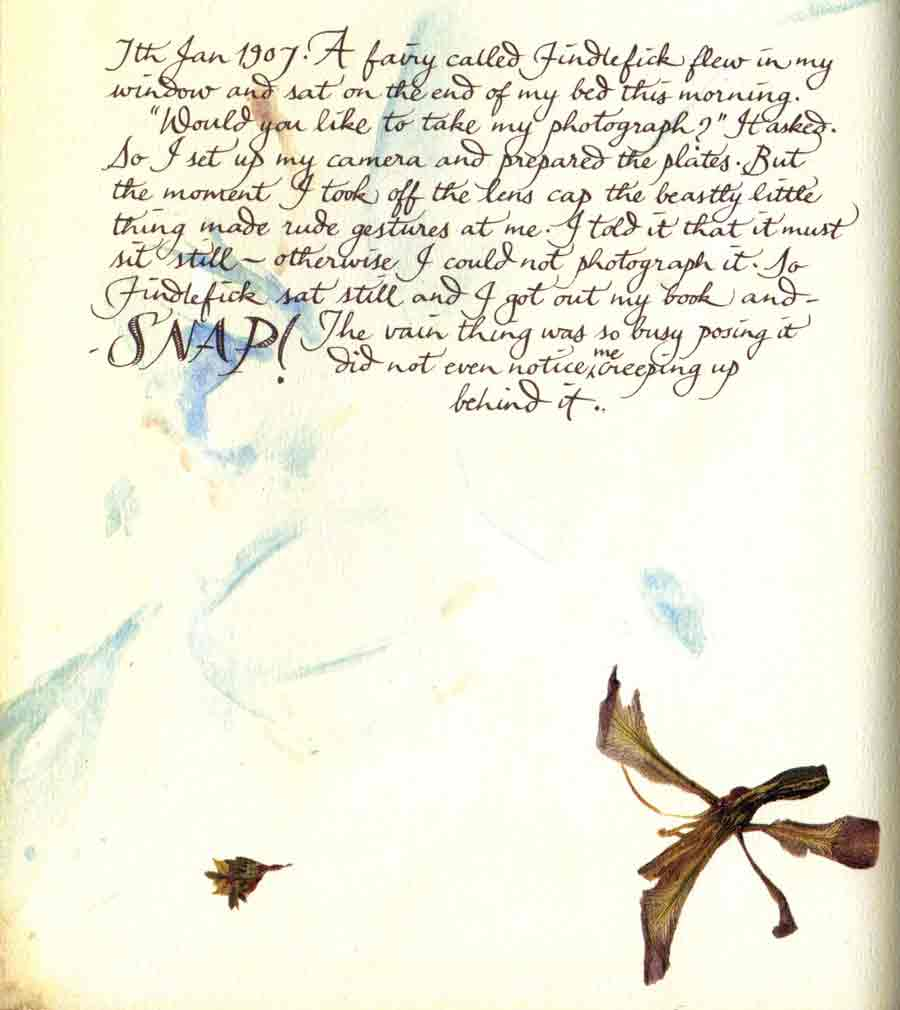 7th Jan 1907. A fairy called Findlefick flew in my
window and sat on the end of my bed this morning.
"Would you like to take my photograph?" It asked.
So I set up my camera and prepared the plates. But
the moment I took off the lens cap the beastly little
thing made rude gestures at me. I told it that it must
sit still ~ otherwise I could not photograph it. So
Findlefick sat still and I got out my book and -
- SNAP! The vain thing was so busy posing it
did not even notice me creeping up
behind it..